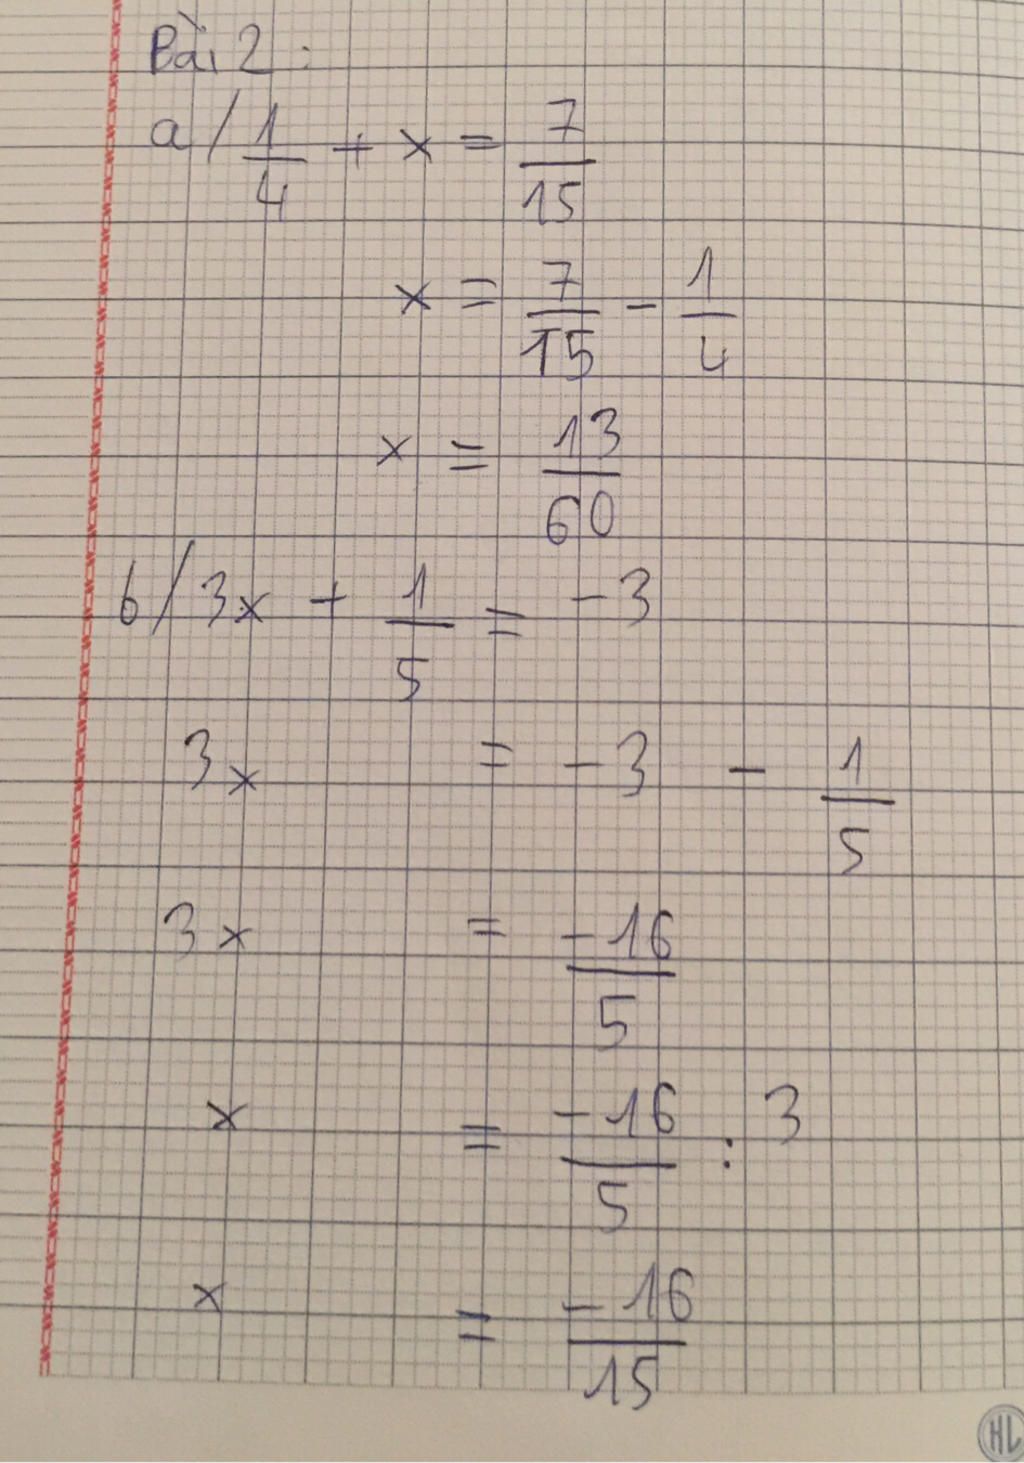 Bài 2 :
a / 1/4 + x = 7/15
x = 7/15 - 1/4
x = 13/60
b / 3x + 1/5 = -3
3x = -3 - 1/5
3x = -16/5
x = -16/5 : 3
x = -16/15
HL